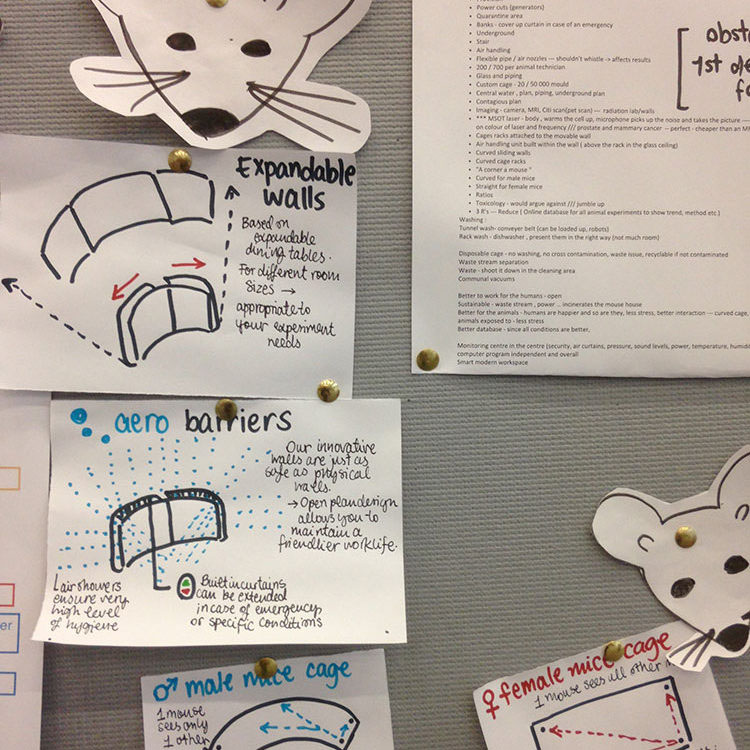 Power cuts (generators)
Quarantine area
Banks - cover up curtain in case of an emergency
Underground
Stair
Air handling
Flexible pipe / air nozzles --- shouldn't whistle -> affects results
200 / 700 per animal technician
Glass and piping
Custom cage - 20 / 50 000 mould
Central water , plan, piping, underground plan
Contagious plan
Imaging - camera, MRI, Citi scan(pet scan) --- radiation lab/walls
*** MSOT laser - body , warms the cell up, microphone picks up the noise and takes the picture ---
on colour of laser and frequency /// prostate and mammary cancer -- perfect - cheaper than an
Cages racks attached to the movable wall
Air handling unit built within the wall ( above the rack in the glass ceiling)
Curved sliding walls
Curved cage racks
"A corner a mouse "
Curved for male mice
Straight for female mice
Ratios
Toxicology - would argue against /// jumble up
3 R's --- Reduce ( Online database for all animal experiments to show trend, method etc.)
Washing -
Tunnel wash- conveyer belt (can be loaded up, robots)
Rack wash - dishwasher , present them in the right way (not much room)
Disposable cage - no washing, no cross contamination, waste issue, recyclable if not contaminated
Waste stream separation
Waste - shoot it down in the cleaning area
Communal vacuums
Better to work for the humans - open
Sustainable - waste stream , power .. incinerates the mouse house
Better for the animals - humans are happier and so are they, less stress, better interaction --- curved cage,
animals exposed to - less stress
Better database - since all conditions are better,
Monitoring centre in the centre (security, air curtains, pressure, sound levels, power, temperature,
computer program independent and overall
Smart modern workspace
1st
Expandable
walls
Based on
expandable
dining tables.
For different room
sizes →
appropriate to
your experiment
needs
aero barriers
Our innovative
walls are just as
safe as physical
walls.
→ Open plan design
allows you to
maintain a
friendlier worklife.
air showers
ensure very
high level
of hygiene
Built in curtains
can be extended
in case of emergency
or specific conditions
♂ male mice cage
1 mouse
sees only
1 other
♀ female mice cage
1 mouse sees all other